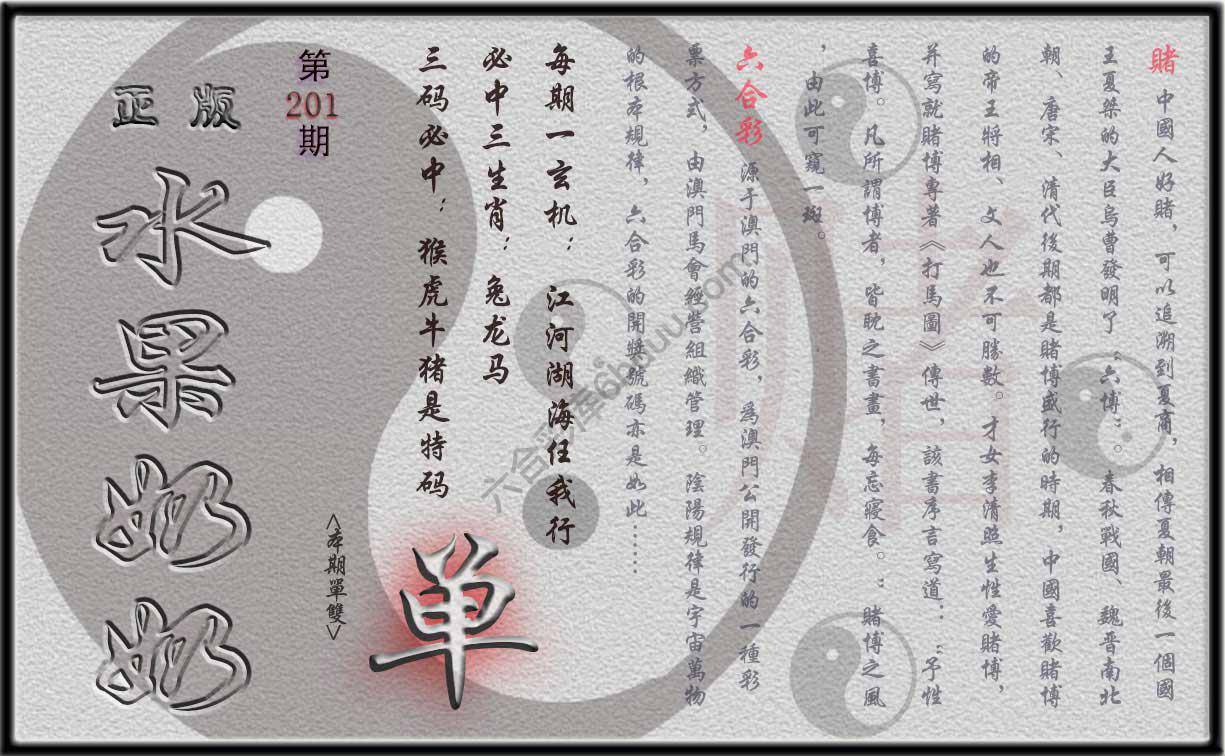 賭 中國人好賭，可以追溯到夏商，相傳夏朝最後一個國
王夏桀的大臣烏曹發明了“六博”。春秋戰國、魏晉南北
朝、唐宋、清代後期都是賭博盛行的時期，中國喜歡賭博
的帝王將相、文人也不可勝數。才女李清照生性愛賭博，
并寫就賭博專著《打馬圖》傳世，該書序言寫道：“予性
喜博。凡所謂博者，皆耽之書畫，每忘寢食。：賭博之風
，由此可窺一斑。
六合彩 源于澳門的六合彩，為澳門公開發行的一種彩
票方式，由澳門馬會經營組織管理。陰陽規律是宇宙萬物
的根本規律，六合彩的開獎號碼亦是如此……
每期一玄机：江河湖海任我行
必中三生肖：兔龙马
三码必中：猴虎牛猪是特码
单
<本期單雙>
第
201
期
正版
水果奶奶
赌
六合彩库6hduu.com